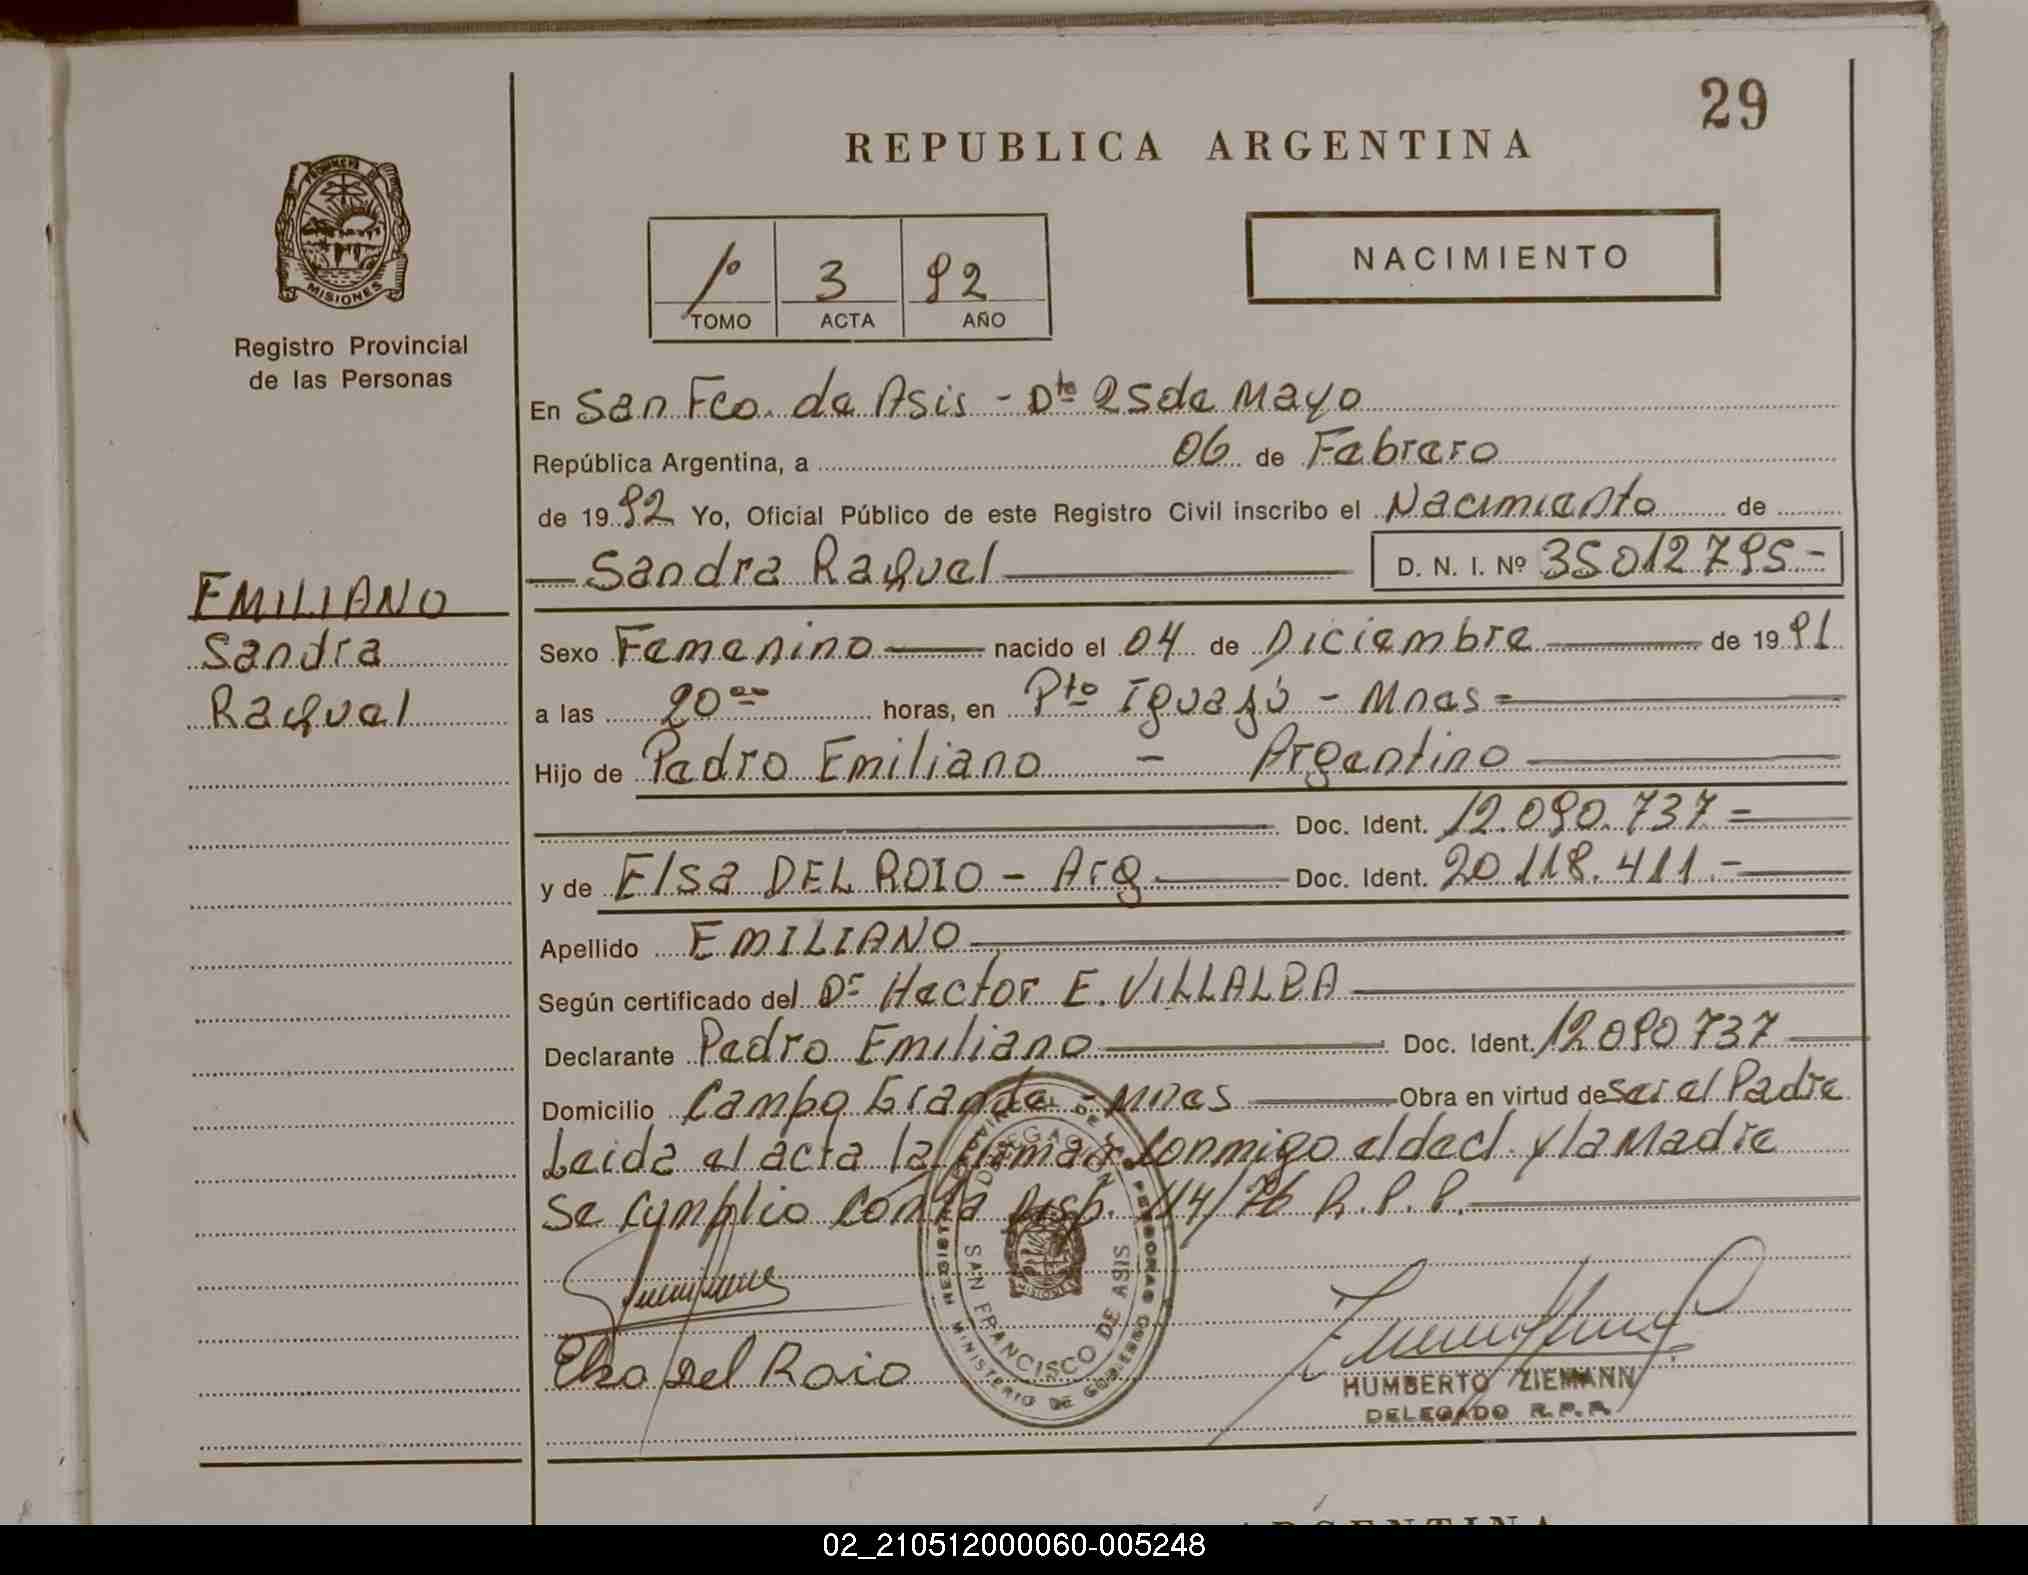 29
REPUBLICA ARGENTINA
PROVINCIA DE
MISIONES
Registro Provincial
de las Personas
1º 3 92
TOMO ACTA AÑO
NACIMIENTO
En San Fco. de Asis - Dto 25 de Mayo
República Argentina, a 06 de Febrero
de 1992 Yo, Oficial Público de este Registro Civil inscribo el Nacimiento de
Sandra Raquel D. N. I. Nº 35012795-
EMILIANO
Sandra
Raquel
Sexo Femenino nacido el 04 de Diciembre de 1991
a las 20oo horas, en Pto Iguazú - Mnes
Hijo de Pedro Emiliano - Argentino
Doc. Ident. 12.090.737
y de Elsa DEL ROIO - Arg Doc. Ident. 20.118.411.-
Apellido EMILIANO
Según certificado del Dr Hector E. VILLALBA
Declarante Pedro Emiliano Doc. Ident. 12090737
Domicilio Campo Grande - Mnes Obra en virtud de ser el Padre
Leida el acta la firman conmigo el decl. y la Madre
Se cumplio con la Disp. 114/76 R.P.P.
Elsa Del Roio
REGISTRO PROVINCIAL DE LAS PERSONAS
DELEGACION
SAN FRANCISCO DE ASIS
MINISTERIO DE GOBIERNO
MISIONES
HUMBERTO ZIEMANN
DELEGADO R.P.P.
ARGENTINA
02_210512000060-005248